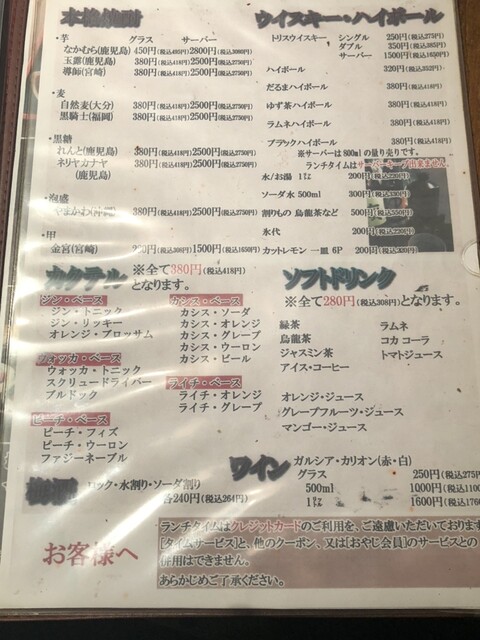 本格焼酎
・芋 グラス サーバー
なかむら(鹿児島) 450円(税込495円) 2800円(税込3080円)
玉露(鹿児島) 380円(税込418円) 2500円(税込2750円)
導師(宮崎) 380円(税込418円) 2500円(税込2750円)
・麦
自然麦(大分) 380円(税込418円) 2500円(税込2750円)
黒騎士(福岡) 380円(税込418円) 2500円(税込2750円)
・黒糖
れんと(鹿児島) 380円(税込418円) 2500円(税込2750円)
ネリヤカナヤ 380円(税込418円) 2500円(税込2750円)
(鹿児島)
・泡盛
やまかわ(沖縄) 380円(税込418円) 2500円(税込2750円)
・甲
金宮(宮崎) 280円(税込308円) 1500円(税込1650円)
ウイスキー・ハイボール
トリスウイスキー シングル 250円(税込275円)
ダブル 350円(税込385円)
サーバー 1500円(税込1650円)
ハイボール 320円(税込352円)
だるまハイボール 380円(税込418円)
ゆず茶ハイボール 380円(税込418円)
ラムネハイボール 380円(税込418円)
ブラックハイボール 380円(税込418円)
※サーバーは800mlの量り売りです。
ランチタイムはサーバーキープ出来ません
水/お湯 1㍑ 200円(税込220円)
ソーダ水 500ml 300円(税込330円)
割りもの 烏龍茶など 500円(税込550円)
氷代 200円(税込220円)
カットレモン 一皿 6P 200円(税込220円)
カクテル ※全て380円(税込418円)
となります。
ジン・ベース
ジン・トニック
ジン・リッキー
オレンジ・ブロッサム
ウォッカ・ベース
ウォッカ・トニック
スクリュードライバー
ブルドック
ピーチ・ベース
ピーチ・フィズ
ピーチ・ウーロン
ファジーネーブル
カシス・ベース
カシス・ソーダ
カシス・オレンジ
カシス・グレープ
カシス・ウーロン
カシス・ビール
ライチ・ベース
ライチ・オレンジ
ライチ・グレープ
ソフトドリンク
※全て280円(税込308円)となります。
緑茶
烏龍茶
ジャスミン茶
アイス・コーヒー
ラムネ
コカ コーラ
トマトジュース
オレンジ・ジュース
グレープフルーツ・ジュース
マンゴー・ジュース
梅酒 ロック・水割り・ソーダ割り
各240円(税込264円)
ワイン ガルシア・カリオン(赤・白)
グラス 250円(税込275円
500ml 1000円(税込1100
1㍑ 1600円(税込1760
お客様へ
ランチタイムはクレジットカードのご利用を、ご遠慮いただいております
[タイムサービス]と、他のクーポン、又は[おやじ会員]のサービスとの
併用はできません。
あらかじめご了承ください。